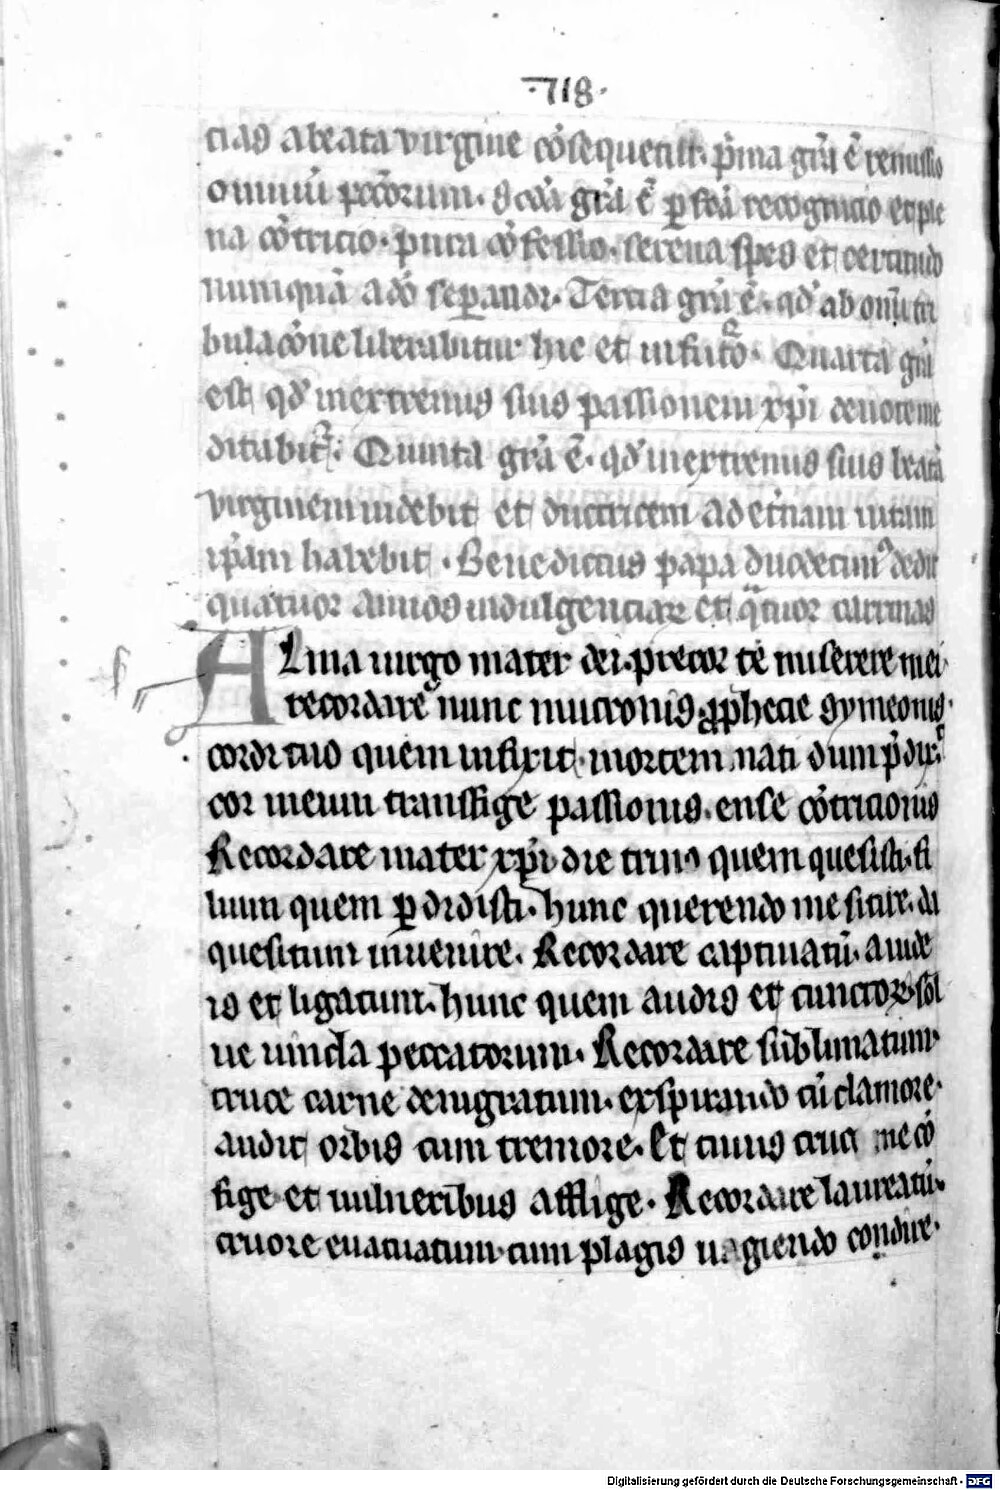 ·718·
cias a beata virgine cōsequentur. p̄ma grā ē remissio
omniū peccōrum. scdā grā ē perfcā recognicio et ple
na cōtricio. pura cōfessio. serena spes et certitudo
nunquā a deo separandi. Tercia grā ē. qd ab omni tri
bulacōne liberabitur hic et in futuro. Quarta grā
est qd in extremis suis passionem xp̄i deuote me
ditabitur. Quinta grā ē. qd in extremis suis beatā
virginem uidebit et ductricem ad et̄nam uitam
ip̄am habebit. Benedictus papa duodecimus dedit
quatuor annos indulgenciarum et quatuor carenas
Alma uirgo mater dei. precor te miserere mei.
recordare nunc mucronis. prophecie symeonis.
cordi tuo quem infixit. mortem nati dum p̄dixit
cor meum transfige passionis. ense cōtricionis
Recordare mater xp̄i. die trino quem quesisti. fi
lium quem perdidisti. hunc querendo me sitire. da
quesitum inuenire. Recordare captiuatū. a iude
is et ligatum. hunc quem audis et cunctorum. sol
ue uincla peccatorum. Recordare sublimatum.
cruce carne denigratum. exspirando cū clamore.
audit orbis cum tremore. Et cuius cruci me cō
fige et uulneribus afflige. Recordare laureatū.
cruore euacuatum. cum plagis uagiendo condire.
Digitalisierung gefördert durch die Deutsche Forschungsgemeinschaft - DFG